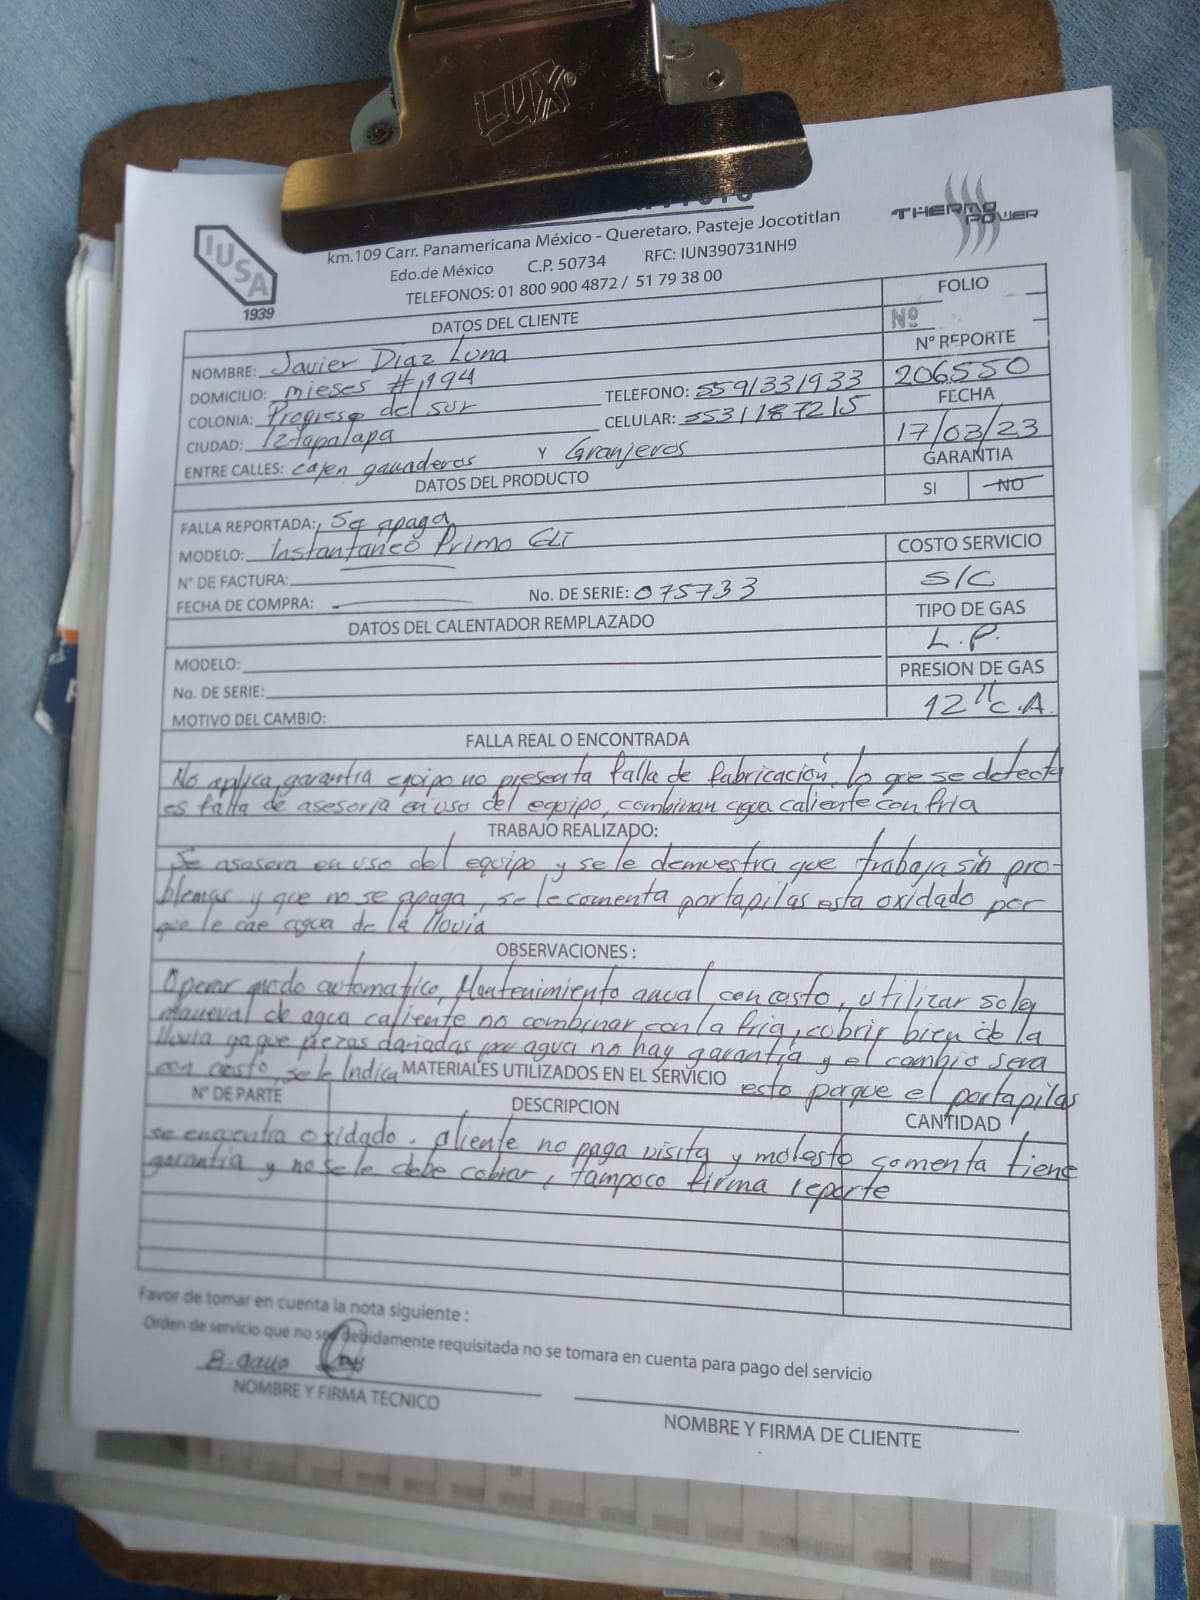 LUX®
IUSA
1939
THERMO
POWER
km.109 Carr. Panamericana México - Queretaro. Pasteje Jocotitlan
Edo.de México C.P. 50734 RFC: IUN390731NH9
TELEFONOS: 01 800 900 4872 / 51 79 38 00
DATOS DEL CLIENTE
FOLIO
Nº
NOMBRE: Javier Diaz Luna
Nº REPORTE
DOMICILIO: mieses # 194 TELEFONO: 5591331933
206550
COLONIA: Progreso del sur CELULAR: 5531187215
FECHA
CIUDAD: Iztapalapa
17/03/23
ENTRE CALLES: cajen ganaderos Y Granjeros
GARANTIA
DATOS DEL PRODUCTO
SI NO
FALLA REPORTADA: Se apaga
MODELO: Instantaneo Primo
COSTO SERVICIO
Nº DE FACTURA:
S/C
FECHA DE COMPRA: No. DE SERIE: 075733
TIPO DE GAS
DATOS DEL CALENTADOR REMPLAZADO
L.P.
MODELO:
PRESION DE GAS
No. DE SERIE:
12"C.A.
MOTIVO DEL CAMBIO:
FALLA REAL O ENCONTRADA
No aplica garantia equipo no presenta falla de fabricación, lo que se detecta
es falta de asesoria en uso del equipo, combinan agua caliente con fria
TRABAJO REALIZADO:
Se asesora en uso del equipo y se le demuestra que trabaja sin pro-
blemas y que no se apaga, se le comenta portapilas esta oxidado por
que le cae agua de la lluvia
OBSERVACIONES :
Operar modo automatico, Mantenimiento anual con costo, utilizar solo
maneral de agua caliente no combinar con la fria, cubrir bien de la
lluvia ya que piezas dañadas por agua no hay garantia y el cambio sera
con costo, se le Indica MATERIALES UTILIZADOS EN EL SERVICIO esto porque el portapilas
Nº DE PARTE DESCRIPCION CANTIDAD
se encuentra oxidado. cliente no paga visita y molesto comenta tiene
garantia y no se le debe cobrar, tampoco firma reporte
Favor de tomar en cuenta la nota siguiente :
Orden de servicio que no sea debidamente requisitada no se tomara en cuenta para pago del servicio
B. Gallo
NOMBRE Y FIRMA TECNICO
NOMBRE Y FIRMA DE CLIENTE